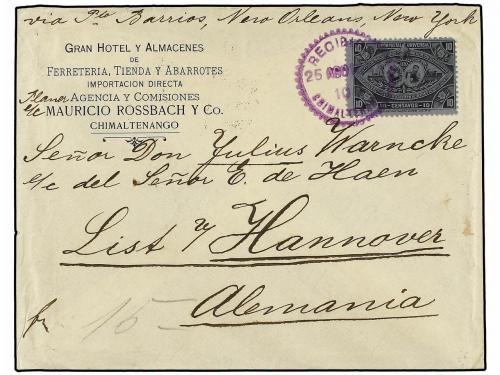 via Pto Barrios, New Orleans, New York
GRAN HOTEL Y ALMACENES
DE
FERRETERIA, TIENDA Y ABARROTES
IMPORTACION DIRECTA
AGENCIA Y COMISIONES
c/c MAURICIO ROSSBACH Y CO.
CHIMALTENANGO
RECIBI
25
10
CHIMALTE
10 10
10 CENTAVOS 10
Señor Don Julius Warncke
c/c del Señor E. de Haen
List y/ Hannover
Alemania
15